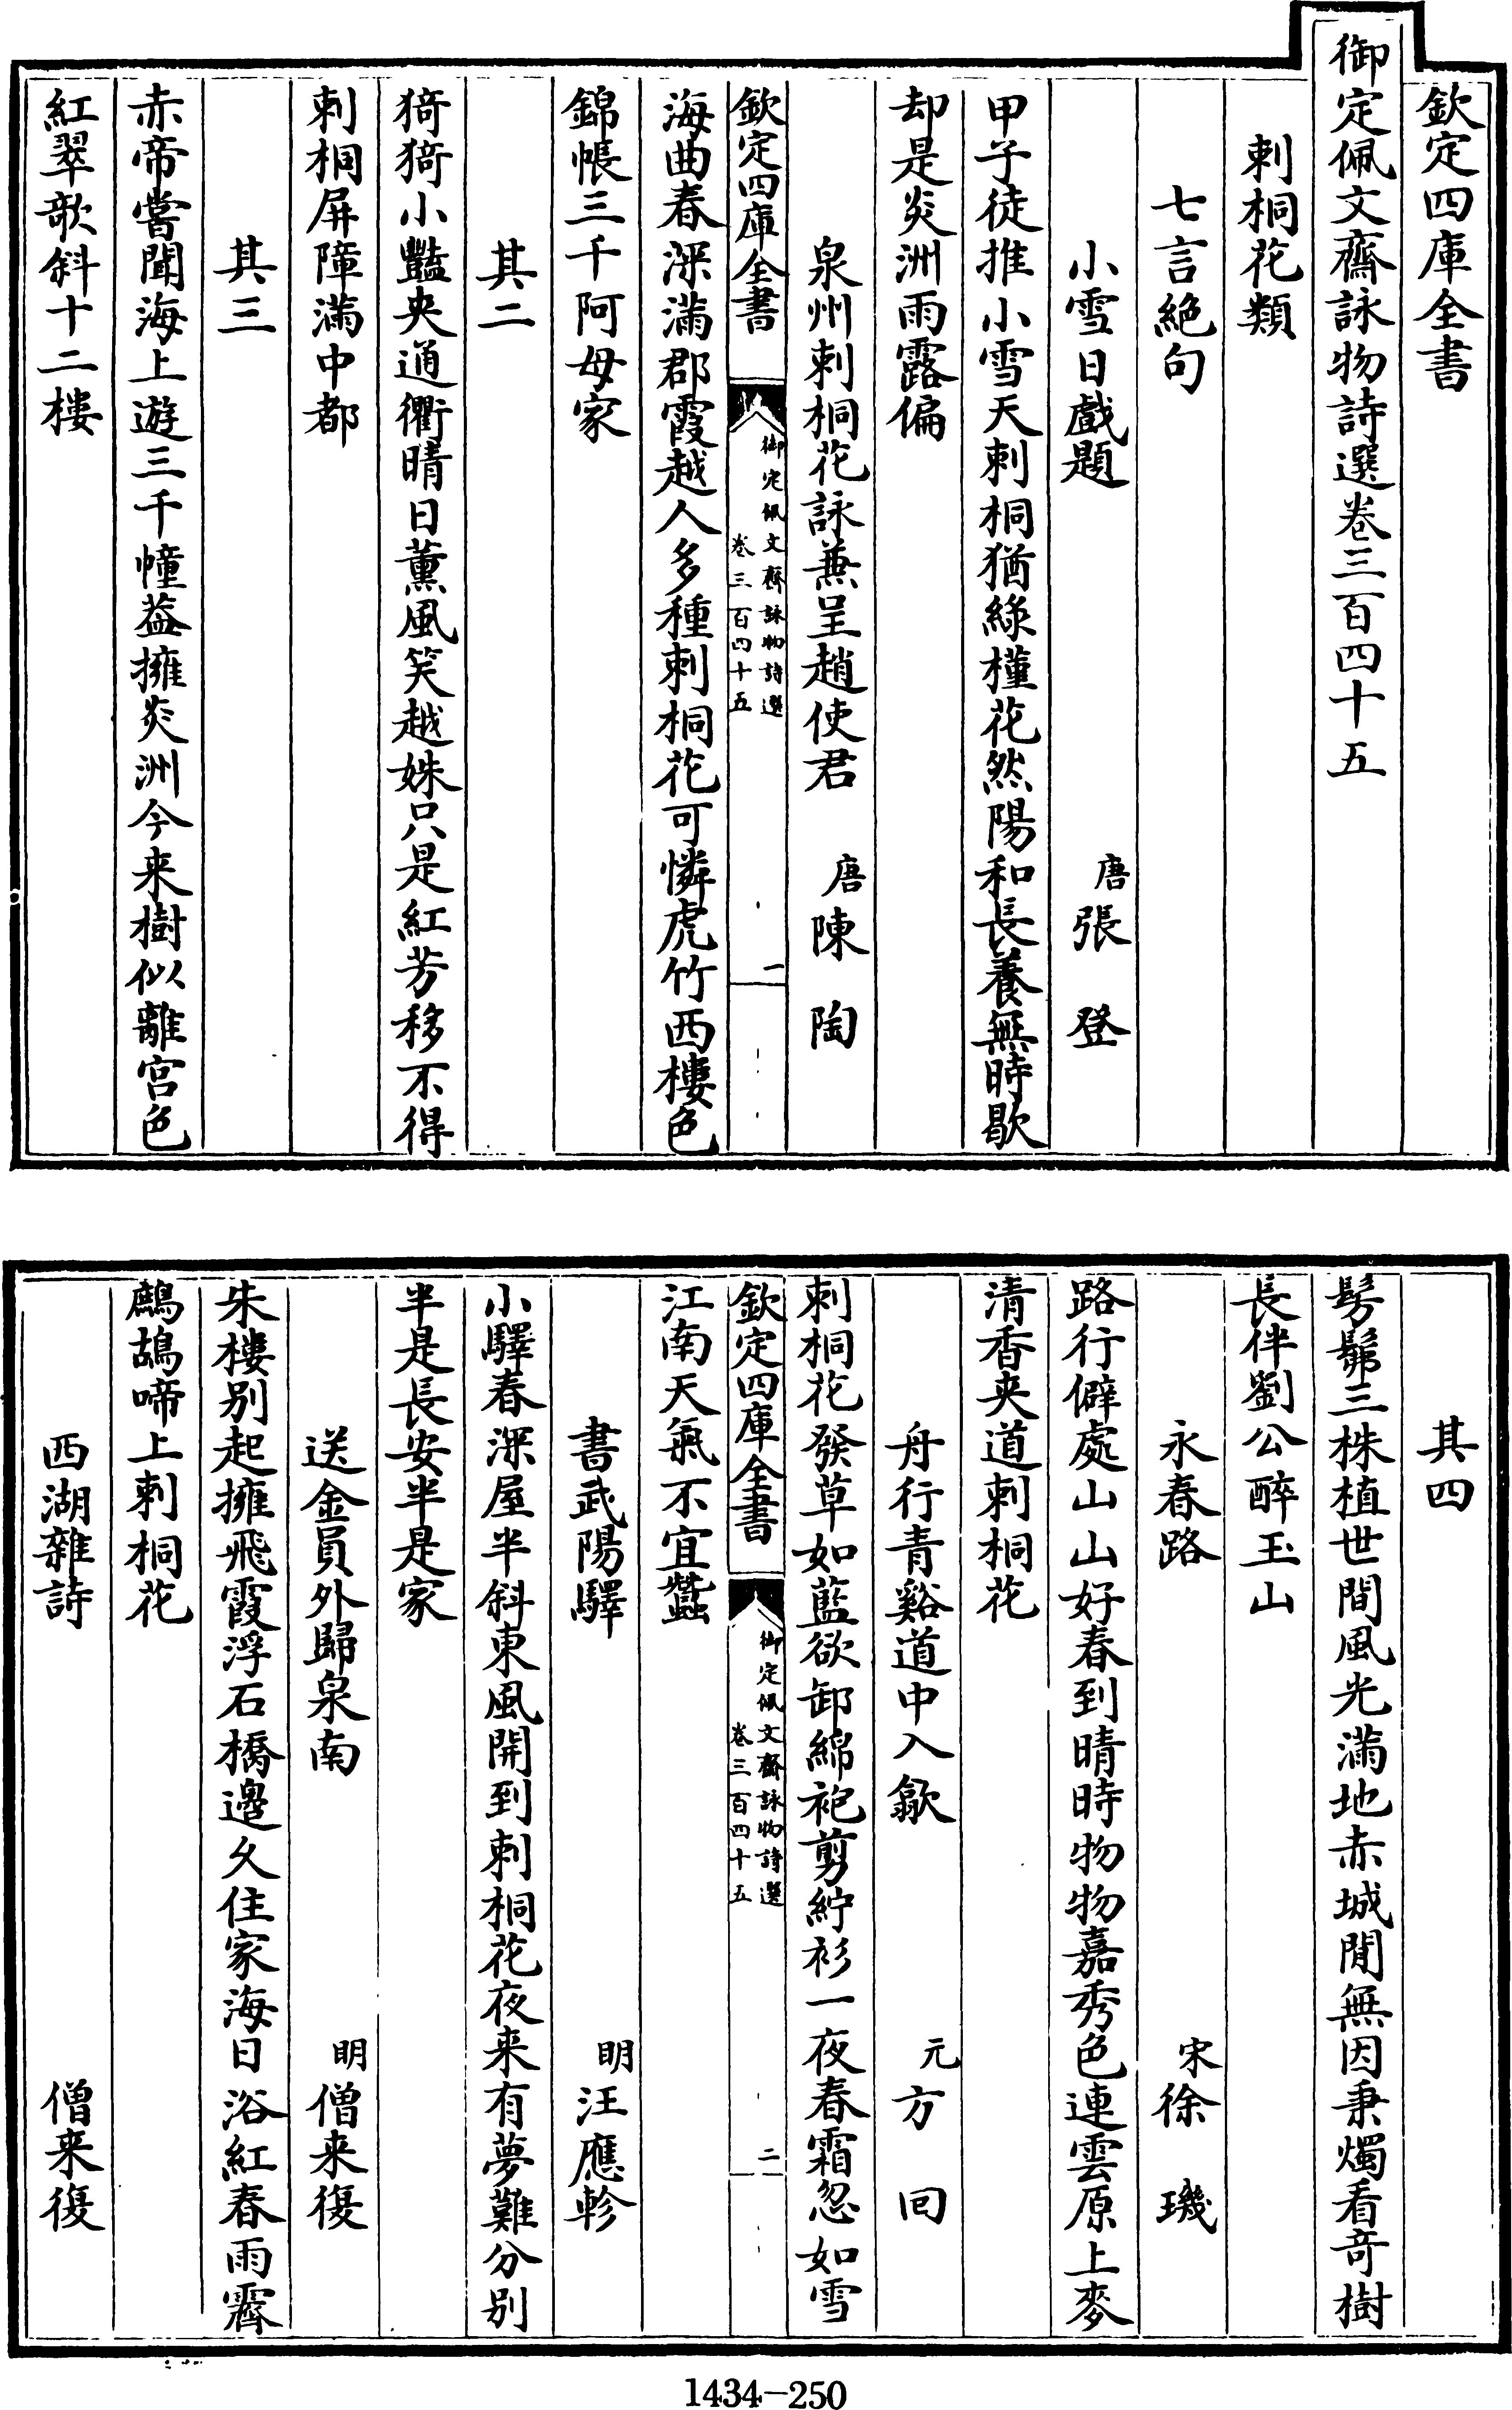 欽定四庫全書
御定佩文齋詠物詩選卷三百四十五
刺桐花類
七言絶句
小雪日戲題　唐張　登
甲子徒推小雪天刺桐猶綠槿花然陽和長養無時歇
却是炎洲雨露偏
泉州刺桐花詠兼呈趙使君　唐陳　陶
欽定四庫全書
御定佩文齋詠物詩選
卷三百四十五
一
海曲春深滿郡霞越人多種刺桐花可憐虎竹西樓色
錦帳三千阿母家
其二
猗猗小豔夾通衢晴日薰風笑越姝只是紅芳移不得
刺桐屏障滿中都
其三
赤帝嘗聞海上遊三千幢葢擁炎洲今来樹似離宮色
紅翠欹斜十二樓
其四
髣髴三株植世間風光滿地赤城閒無因秉燭看奇樹
長伴劉公醉玉山
永春路　宋徐　璣
路行僻處山山好春到晴時物物嘉秀色連雲原上麥
清香夹道刺桐花
舟行青谿道中入歙　元方　回
刺桐花發草如藍欲卸綿袍剪紵衫一夜春霜忽如雪
欽定四庫全書
御定佩文齋詠物詩選
卷三百四十五
二
江南天氣不宜蠶
書武陽驛　明汪應軫
小驛春深屋半斜東風開到刺桐花夜来有夢難分別
半是長安半是家
送金員外歸泉南　明僧来復
朱樓别起擁飛霞浮石橋邉久住家海日浴紅春雨霽
鷓鴣啼上刺桐花
西湖雜詩　僧来復
1434-250